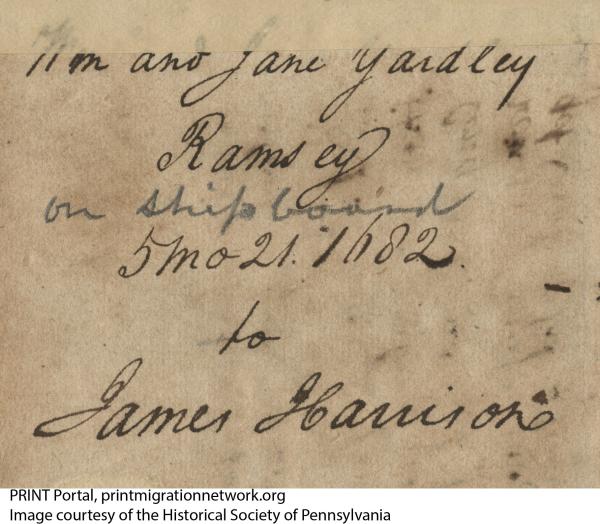 Wm and Jane Yardley
Ramsey
on shipboard
5mo 21. 1682.
to
James Harrison
PRINT Portal, printmigrationnetwork.org
Image courtesy of the Historical Society of Pennsylvania